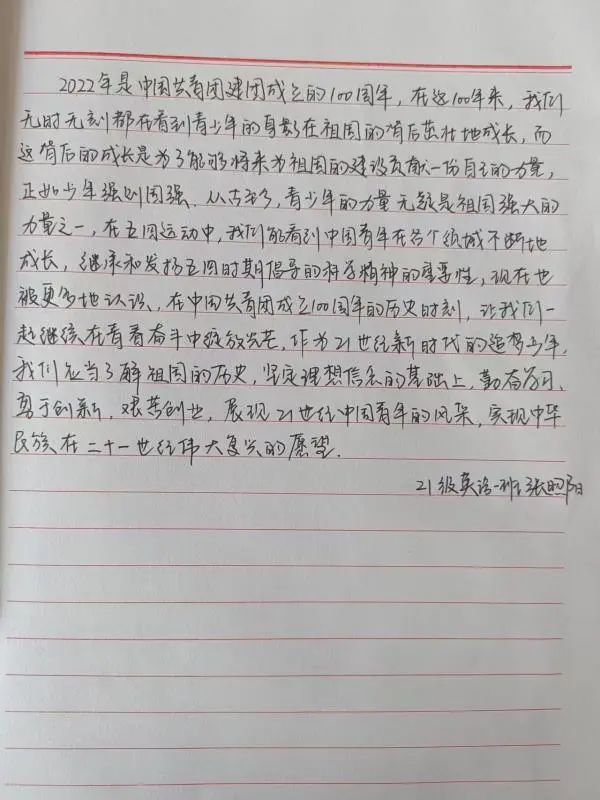 2022年是中国共青团建团成立的100周年，在这100年来，我们
无时无刻都在看到青少年的身影在祖国的背后茁壮地成长，而
这背后的成长是为了能够将来为祖国的建设贡献一份自己的力量，
正如少年强则国强、从古至今，青少年的力量无疑是祖国强大的
力量之一，在五四运动中，我们能看到中国青年在各个领域不断地
成长，继承和发扬五四时期倡导的科学精神的重要性，现在也
被更多地认识、在中国共青团成立100周年的历史时刻，让我们一
起继续在青春奋斗中绽放光芒，作为21世纪新时代的追梦少年，
我们应当了解祖国的历史，坚定理想信念的基础上，勤奋学习、
勇于创新，艰苦创业，展现21世纪中国青年的风采，实现中华
民族在二十一世纪伟大复兴的愿望.
21级英语一班张照阳